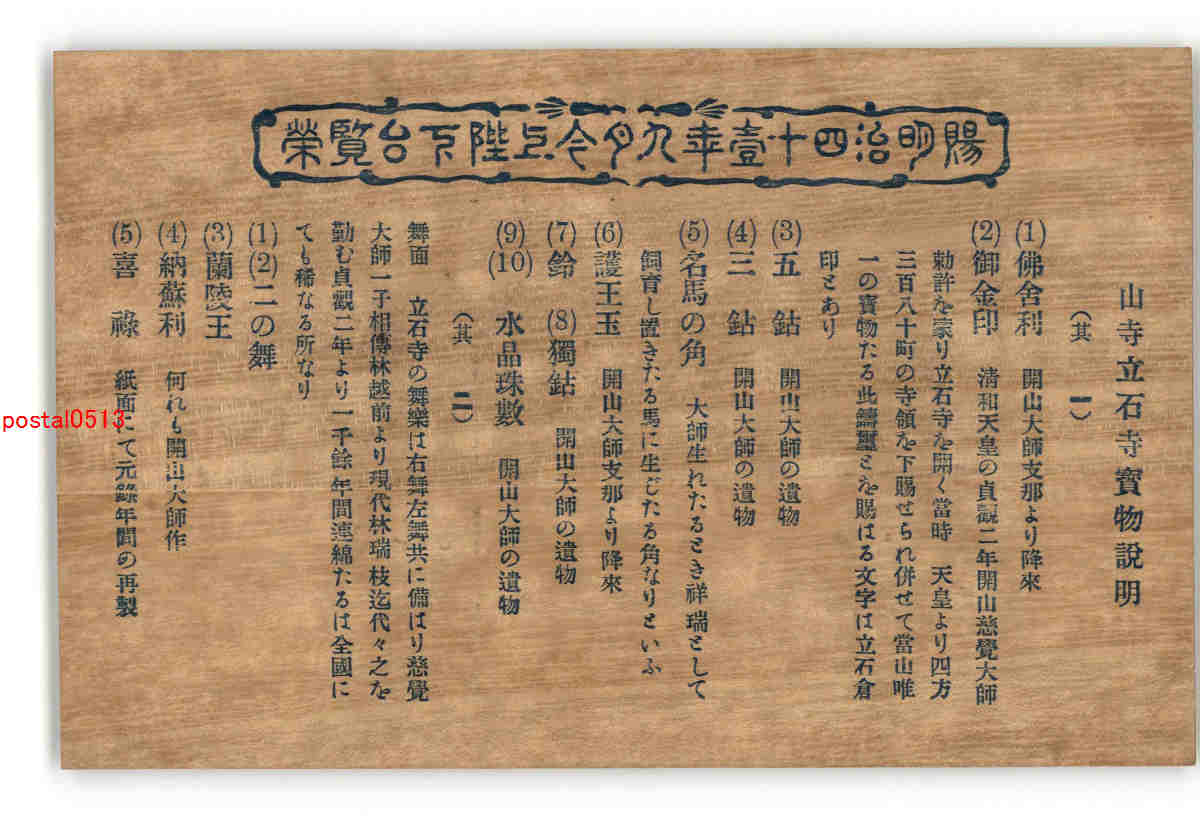 賜明治四十壹年九月今上陛下台覧榮
山寺立石寺寳物説明
（其一）
(1)佛舍利 開山大師支那より降來
(2)御金印 淸和天皇の貞觀二年開山慈覺大師
勅許を蒙り立石寺を開く當時 天皇より四方
三百八十町の寺領を下賜せられ併せて當山唯
一の寳物たる此鑄璽とを賜はる文字は立石倉
印とあり
(3)五鈷 開山大師の遺物
(4)三鈷 開山大師の遺物
(5)名馬の角 大師生れたるとき祥瑞として
飼育し置きたる馬に生じたる角なりといふ
(6)護王玉 開山大師支那より降來
(7)鈴 (8)獨鈷 開山大師の遺物
(9)(10)水品珠數 開山大師の遺物
（其二）
舞面 立石寺の舞樂は右舞左舞共に備はり慈覺
大師一子相傳林越前より現代林瑞枝迄代々之を
勤む貞觀二年より一千餘年間連綿たるは全國に
ても稀なる所なり
(1)(2)二の舞
(3)蘭陵王
(4)納蘇利 何れも開山大師作
(5)喜祿 紙面にて元錄年間の再製
postal0513